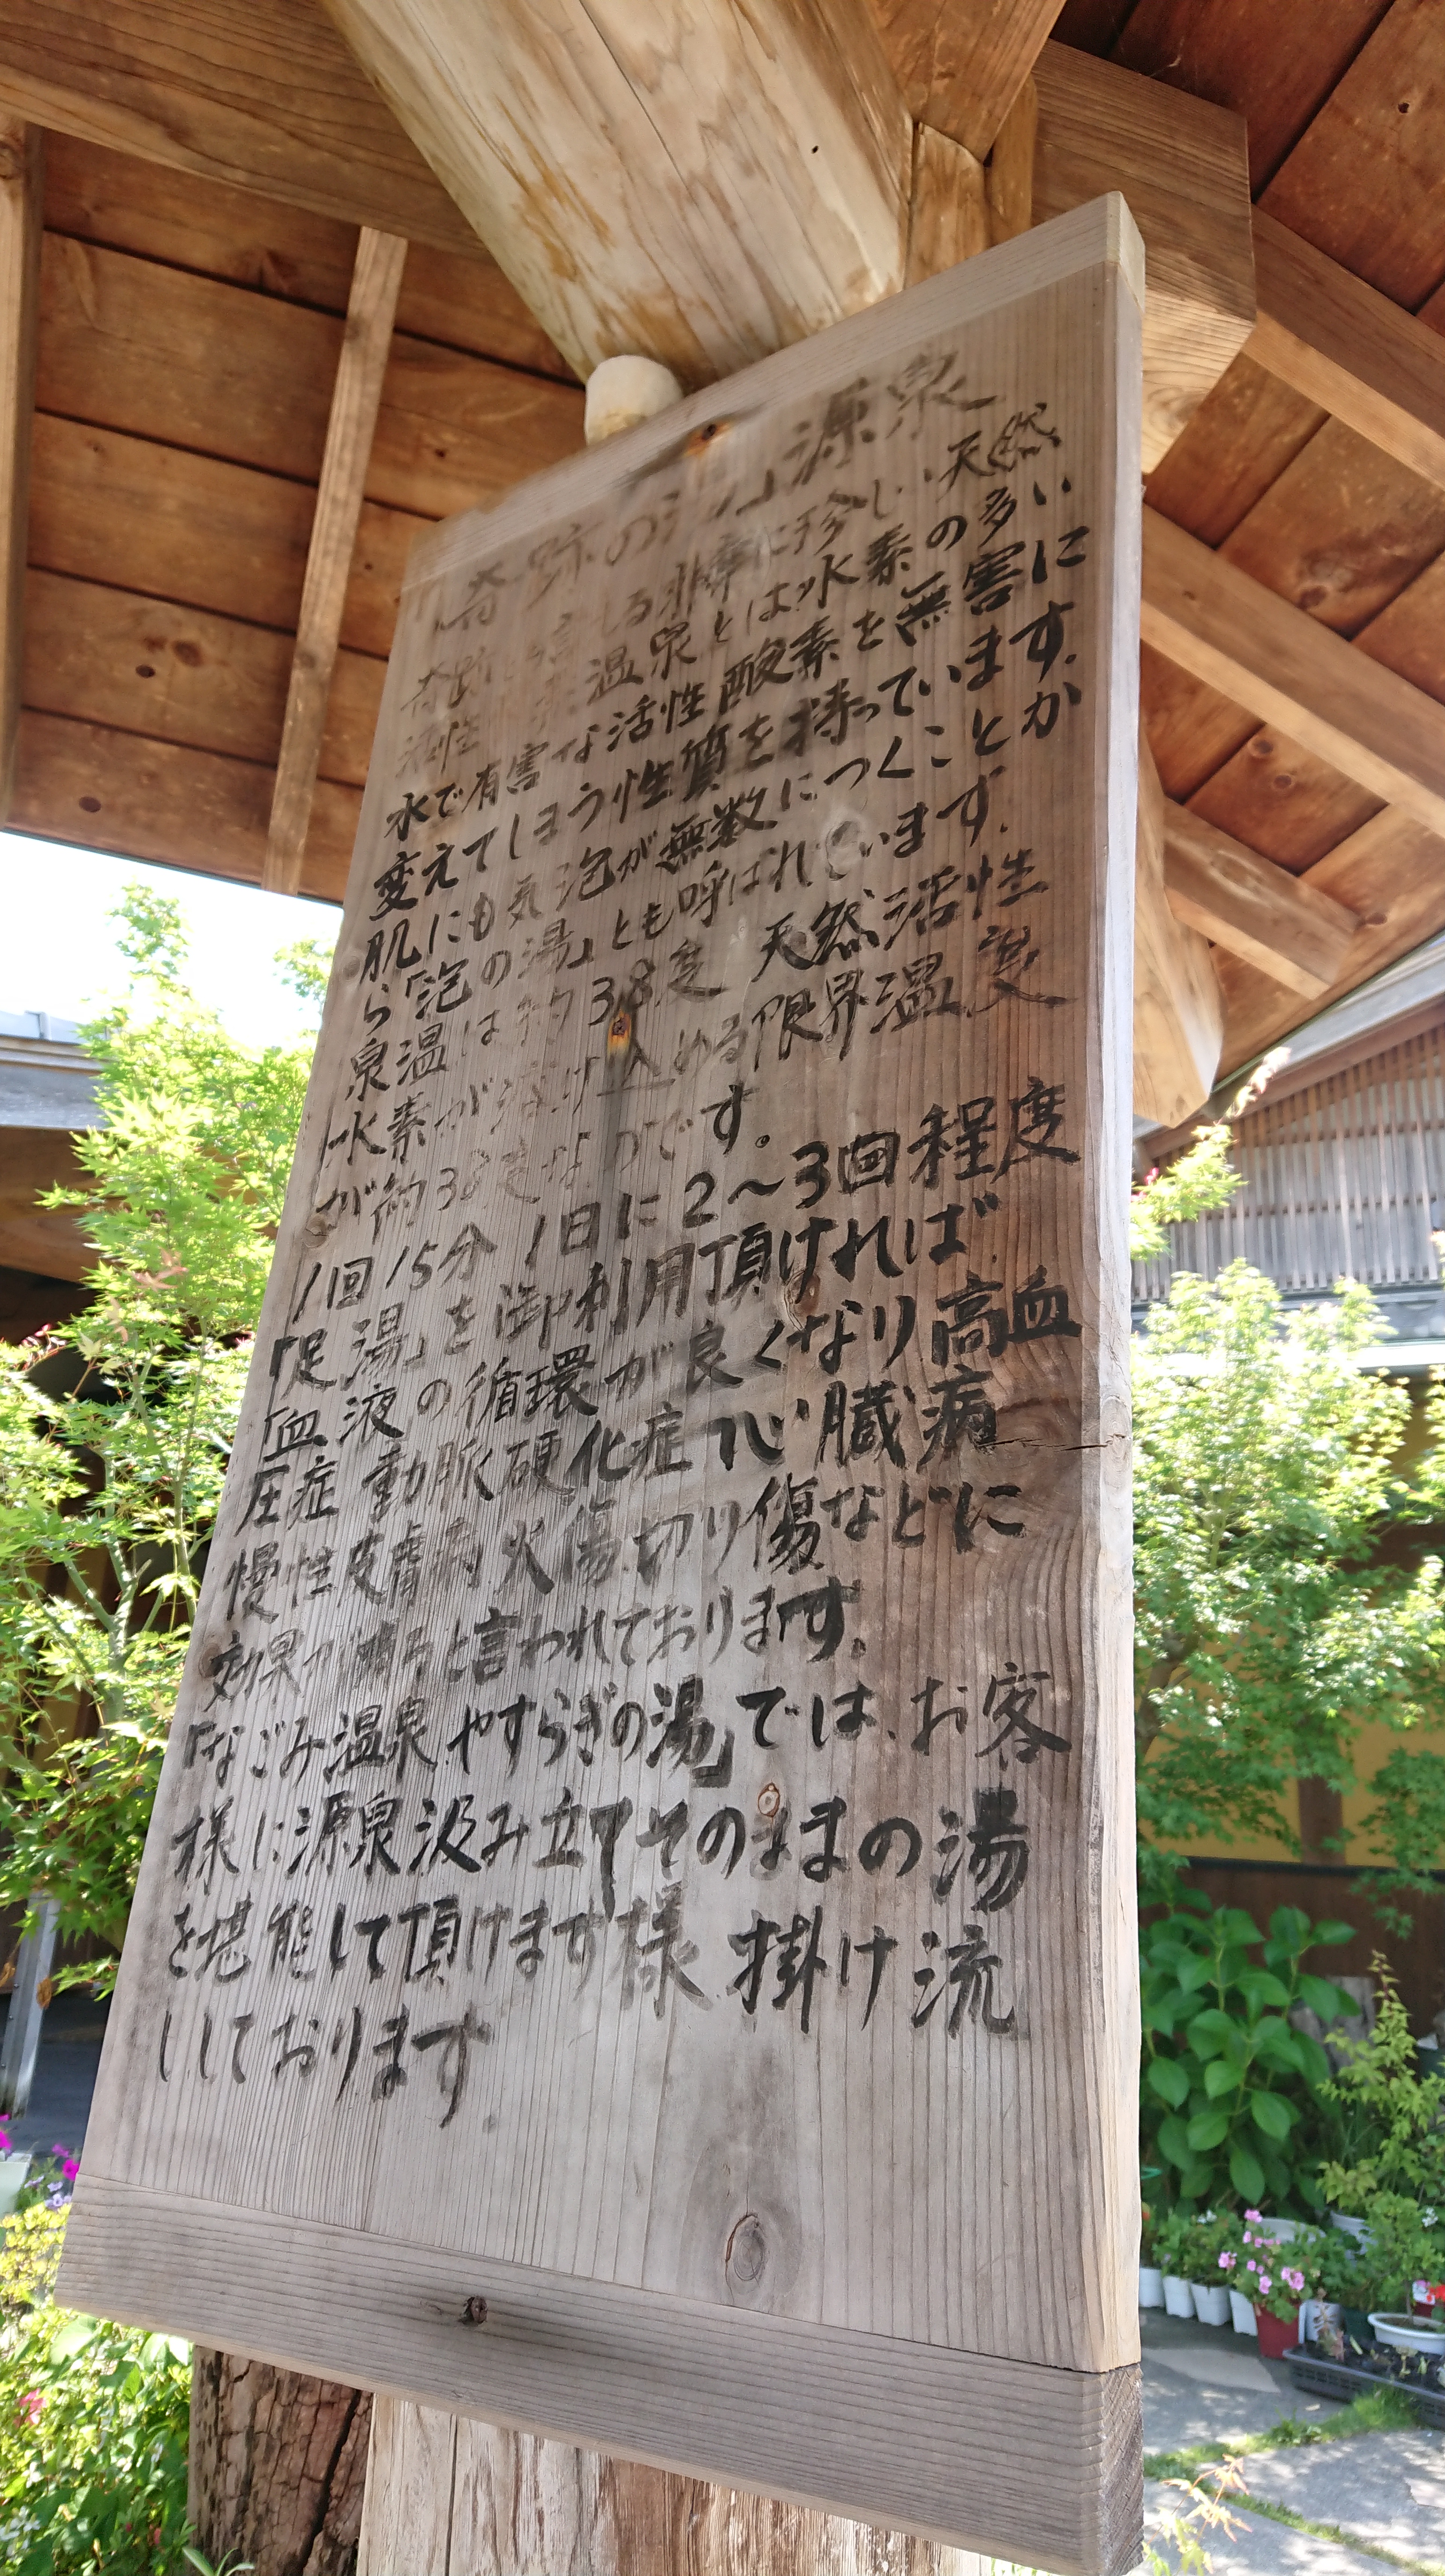 「奇跡の湯」源泉
奇跡 る非常に珍しい天然
活性 温泉とは水素の多い
水で有害な活性酸素を無害に
変えてしまう性質を持っています.
肌にも気泡が無数につくことか
ら「泡の湯」とも呼ばれています.
泉温は約38度 天然活性
水素が溶け込める限界温度
が約38度なのです。
1回15分 1日に2〜3回程度
「足湯」を御利用頂ければ
「血液の循環が良くなり高血
圧症 動脈硬化症 心臓病
慢性皮膚病 火傷 切り傷などに
効果が 言われております。
「なごみ温泉 やすらぎの湯」では、お客
様に源泉汲み立てそのままの湯
を堪能して頂けます様 掛け流
ししております.